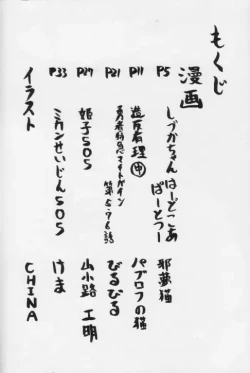 もくじ
漫画
P5 しづかちゃん はーどこあ ぱーとつー 邪夢猫
P11 造反有理㊥ パブロフの猫
P21 勇者特急マイトガイン 第5・7・6話 びるびる
P27 姫子SOS 山小路 工明
P33 ミカンせいじんSOS けま
イラスト CHINA